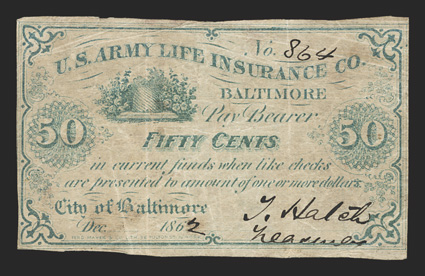 No. 864
U.S. ARMY LIFE INSURANCE CO.
BALTIMORE
Pay Bearer
50 FIFTY CENTS 50
in current funds when like checks
are presented to amount of one or more dollars.
City of Baltimore
Dec. 1862
T. Hatch
Treasurer